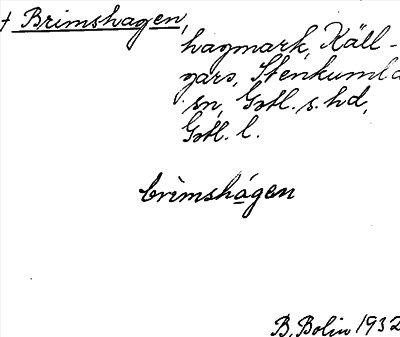 † Brimshagen,
hagmark, Käll-
gårs, Stenkumla
sn, Gotl. s. hd,
Gotl. l.
brìmshá̱gen
B. Bolin 1932